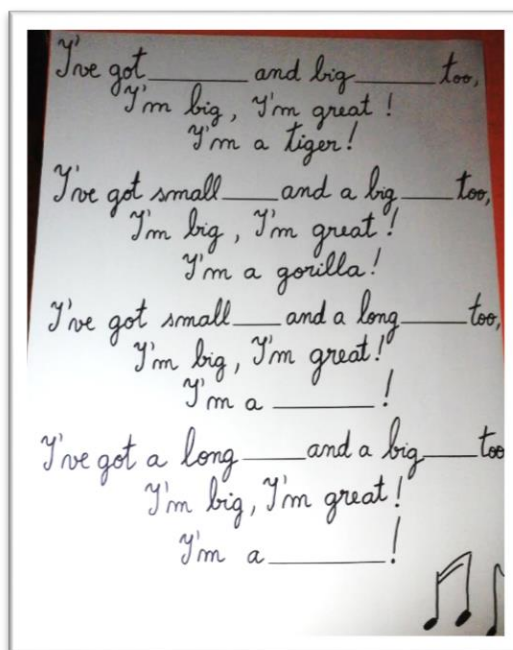 I've got ________ and big ______ too,
I'm big, I'm great!
I'm a tiger!
I've got small ____ and a big ____ too,
I'm big, I'm great!
I'm a gorilla!
I've got small ____ and a long _____ too,
I'm big, I'm great!
I'm a ________!
I've got a long _____ and a big ____ too
I'm big, I'm great!
I'm a _________!